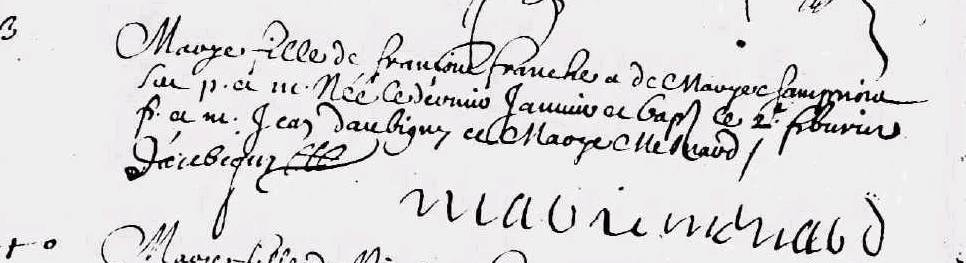 3
Marye fille de francois franche et de Marye champion
sur p. et m. Née le dernier Janvier et bap le 2e febvrier
p. et m. Jean daubigny et Marye Menard
Daubigny
marie menard
Marye fille de